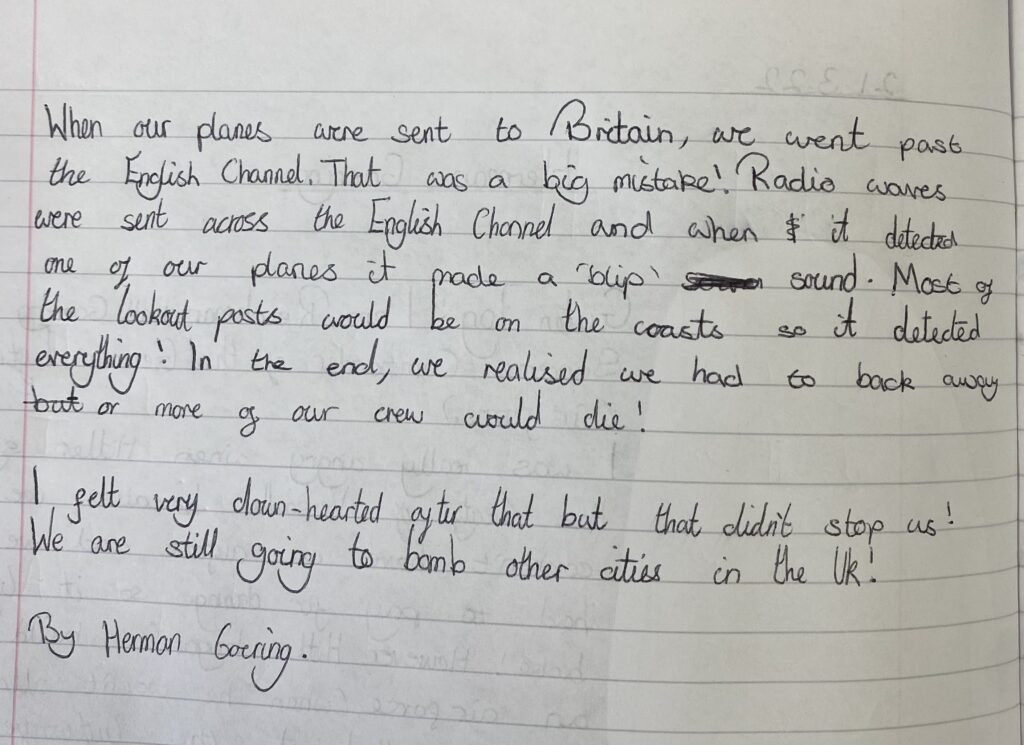 When our planes were sent to Britain, we went past
the English Channel. That was a big mistake! Radio waves
were sent across the English Channel and when it detected
one of our planes it made a 'blip' sound. Most of
the lookout posts would be on the coasts so it detected
everything! In the end, we realised we had to back away
but or more of our crew would die!
I felt very down-hearted after that but that didn't stop us!
We are still going to bomb other cities in the Uk!
By Herman Goering.